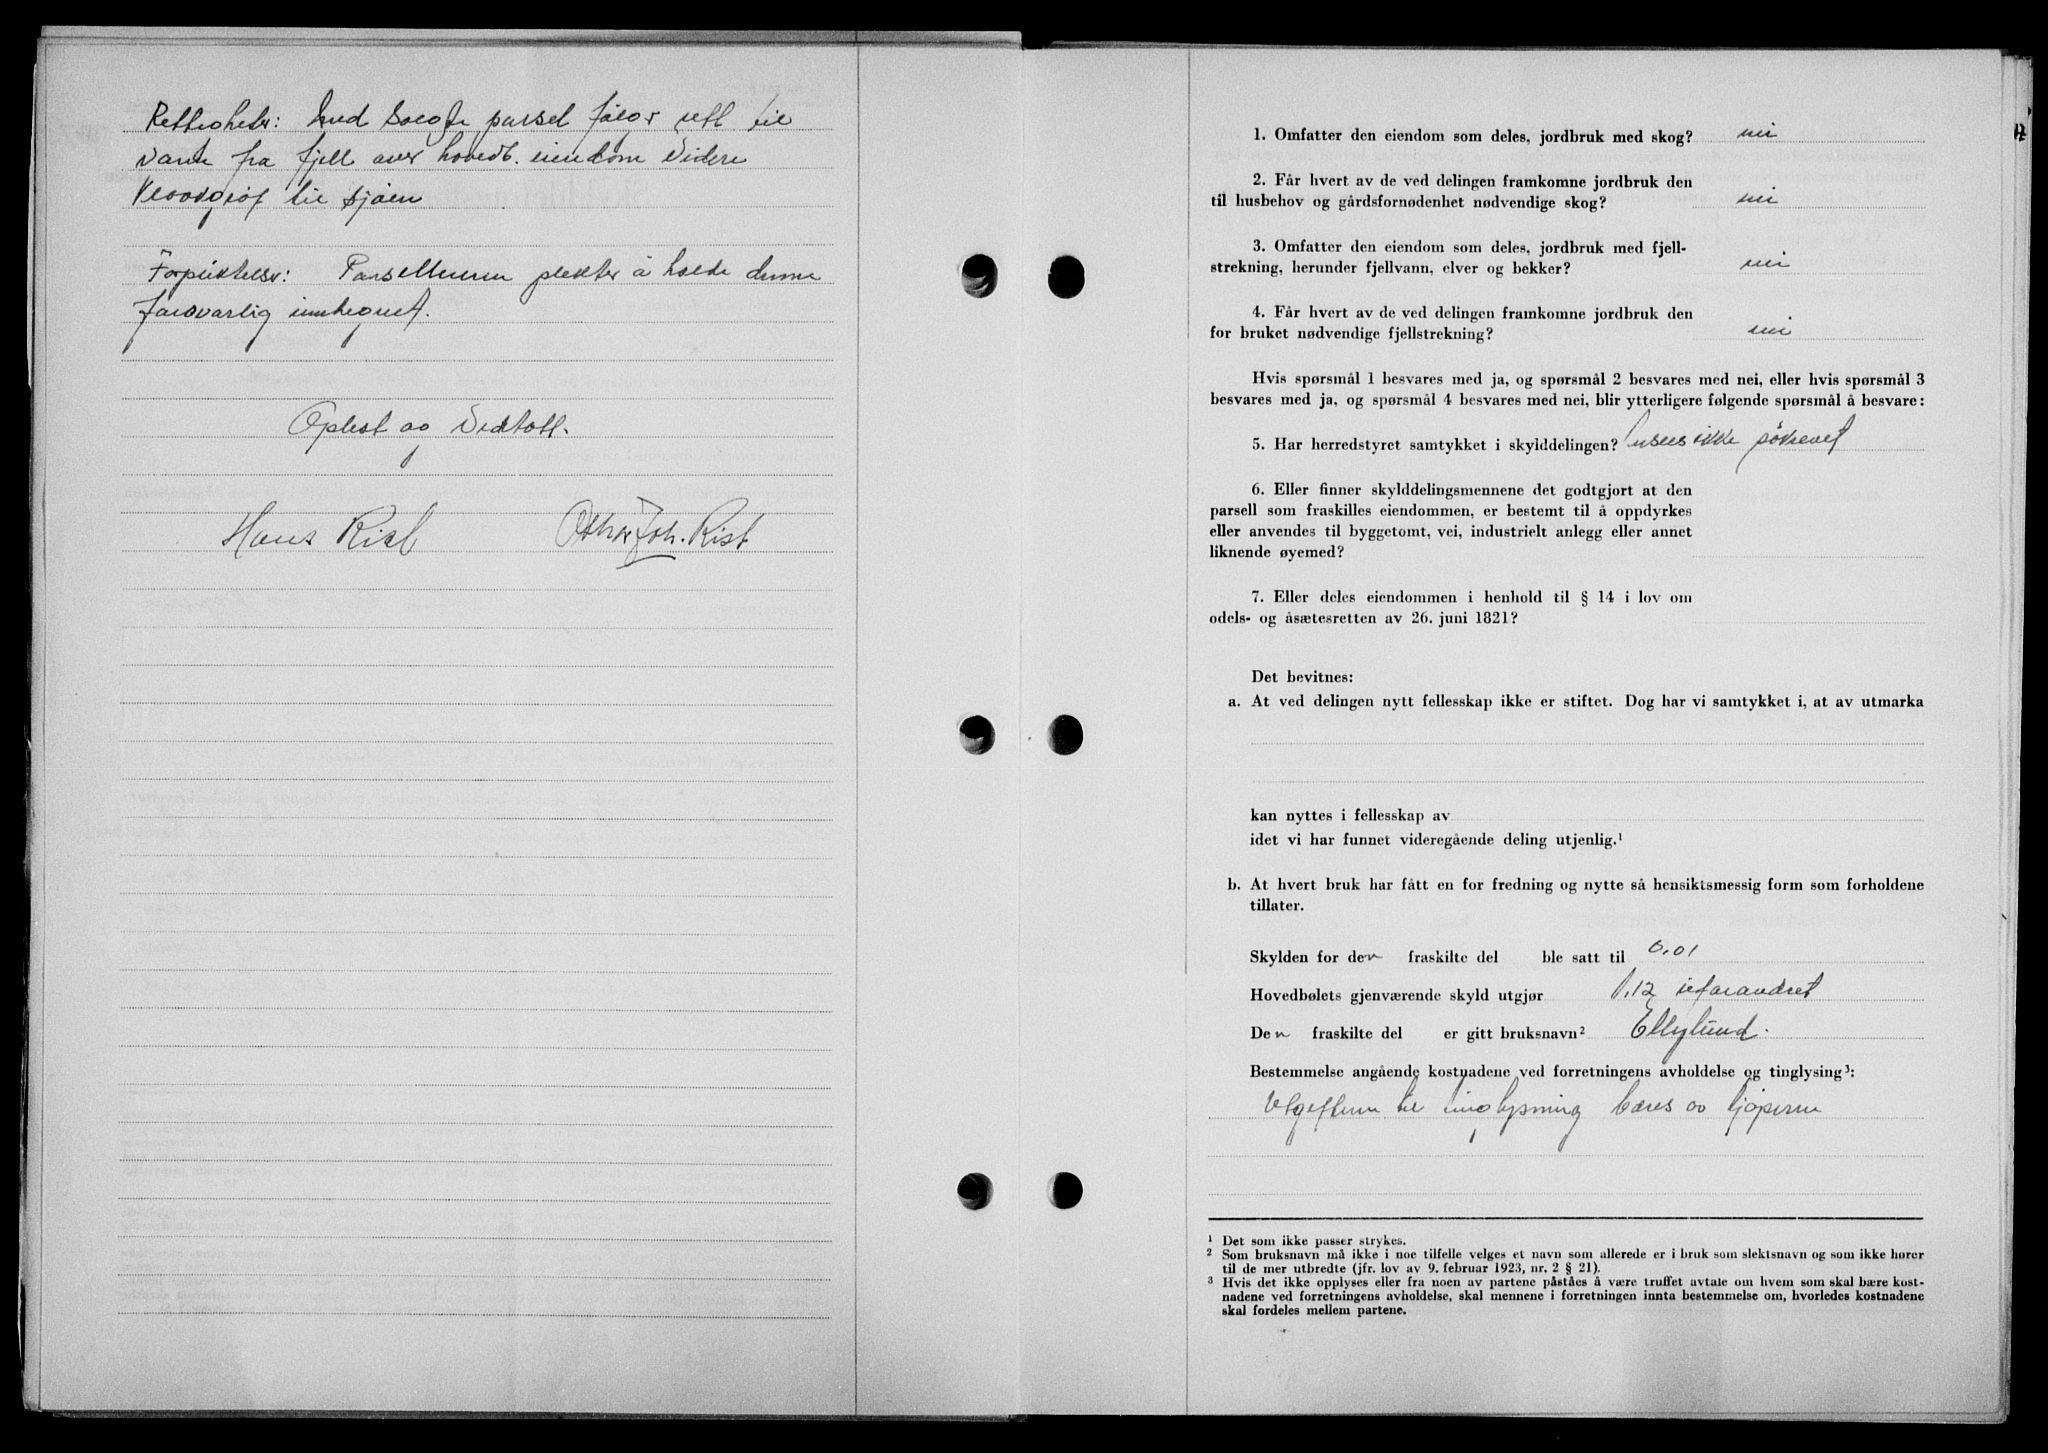 Rettigheter: Med solgte parsel følger rett til
vann fra fjell over hovedb. eiendom videre
kloakgrøf til sjøen
Forpliktelser: Parselleieren plikter å holde denne
forsvarlig innhegnet.
Oplest og vedtatt.
Hans Rist Othar Joh. Rist
1. Omfatter den eiendom som deles, jordbruk med skog? nei
2. Får hvert av de ved delingen framkomne jordbruk den
til husbehov og gårdsfornødenhet nødvendige skog? nei
3. Omfatter den eiendom som deles, jordbruk med fjell-
strekning, herunder fjellvann, elver og bekker? nei
4. Får hvert av de ved delingen framkomne jordbruk den
for bruket nødvendige fjellstrekning? nei
Hvis spørsmål 1 besvares med ja, og spørsmål 2 besvares med nei, eller hvis spørsmål 3
besvares med ja, og spørsmål 4 besvares med nei, blir ytterligere følgende spørsmål å besvare:
5. Har herredstyret samtykket i skylddelingen? ansees ikke påkrevet
6. Eller finner skylddelingsmennene det godtgjort at den
parsell som fraskilles eiendommen, er bestemt til å oppdyrkes
eller anvendes til byggetomt, vei, industrielt anlegg eller annet
liknende øyemed?
7. Eller deles eiendommen i henhold til § 14 i lov om
odels- og åsætesretten av 26. juni 1821?
Det bevitnes:
a. At ved delingen nytt fellesskap ikke er stiftet. Dog har vi samtykket i, at av utmarka
kan nyttes i fellesskap av
idet vi har funnet videregående deling utjenlig.¹
b. At hvert bruk har fått en for fredning og nytte så hensiktsmessig form som forholdene
tillater.
Skylden for den fraskilte del ble satt til 0.01
Hovedbølets gjenværende skyld utgjør 1.12 uforandret
Den fraskilte del er gitt bruksnavn² Ellylund.
Bestemmelse angående kostnadene ved forretningens avholdelse og tinglysing³:
Utgiftene til tinglysning bæres av kjøperen
¹ Det som ikke passer strykes.
² Som bruksnavn må ikke i noe tilfelle velges et navn som allerede er i bruk som slektsnavn og som ikke hører
til de mer utbredte (jfr. lov av 9. februar 1923, nr. 2 § 21).
³ Hvis det ikke opplyses eller fra noen av partene påståes å være truffet avtale om hvem som skal bære kost-
nadene ved forretningens avholdelse, skal mennene i forretningen innta bestemmelse om, hvorledes kostnadene
skal fordeles mellem partene.